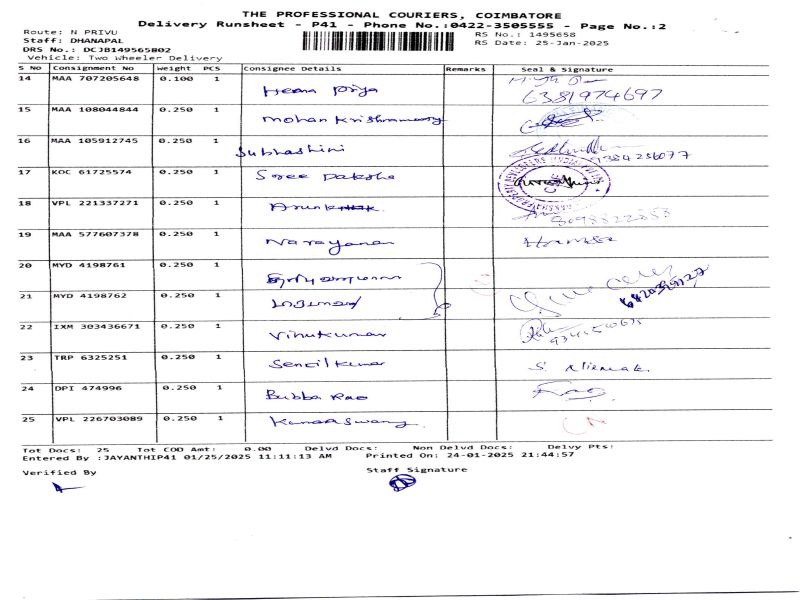 THE PROFESSIONAL COURIERS, COIMBATORE
Delivery Runsheet - P41 - Phone No.:0422-3505555 - Page No.:2
Route: N PRIVU
RS No.: 1495658
Staff: DHANAPAL
RS Date: 25-Jan-2025
DRS No.: DCJB149565802
Vehicle: Two Wheeler Delivery
S No Consignment No Weight PCS Consignee Details Remarks Seal & Signature
14 MAA 707205648 0.100 1 Hema Priya 6381974697
15 MAA 108044844 0.250 1 Mohan Krishnamoorthy
16 MAA 105912745 0.250 1 Subhashini 9384236077
17 KOC 61725574 0.250 1 Sree Daksha
18 VPL 221337271 0.250 1 Arun
19 MAA 577607378 0.250 1 Narayanan
20 MYD 4198761 0.250 1
21 MYD 4198762 0.250 1
22 IXM 303436671 0.250 1 Vinukumar
23 TRP 6325251 0.250 1 Sencilkumar S.
24 DPI 474996 0.250 1 Bubba Rao Rao
25 VPL 226703089 0.250 1 Kanagaswamy
Tot Docs: 25 Tot COD Amt: 0.00 Delvd Docs: Non Delvd Docs: Delvy Pts:
Entered By :JAYANTHIP41 01/25/2025 11:11:13 AM Printed On: 24-01-2025 21:44:57
Verified By
Staff Signature